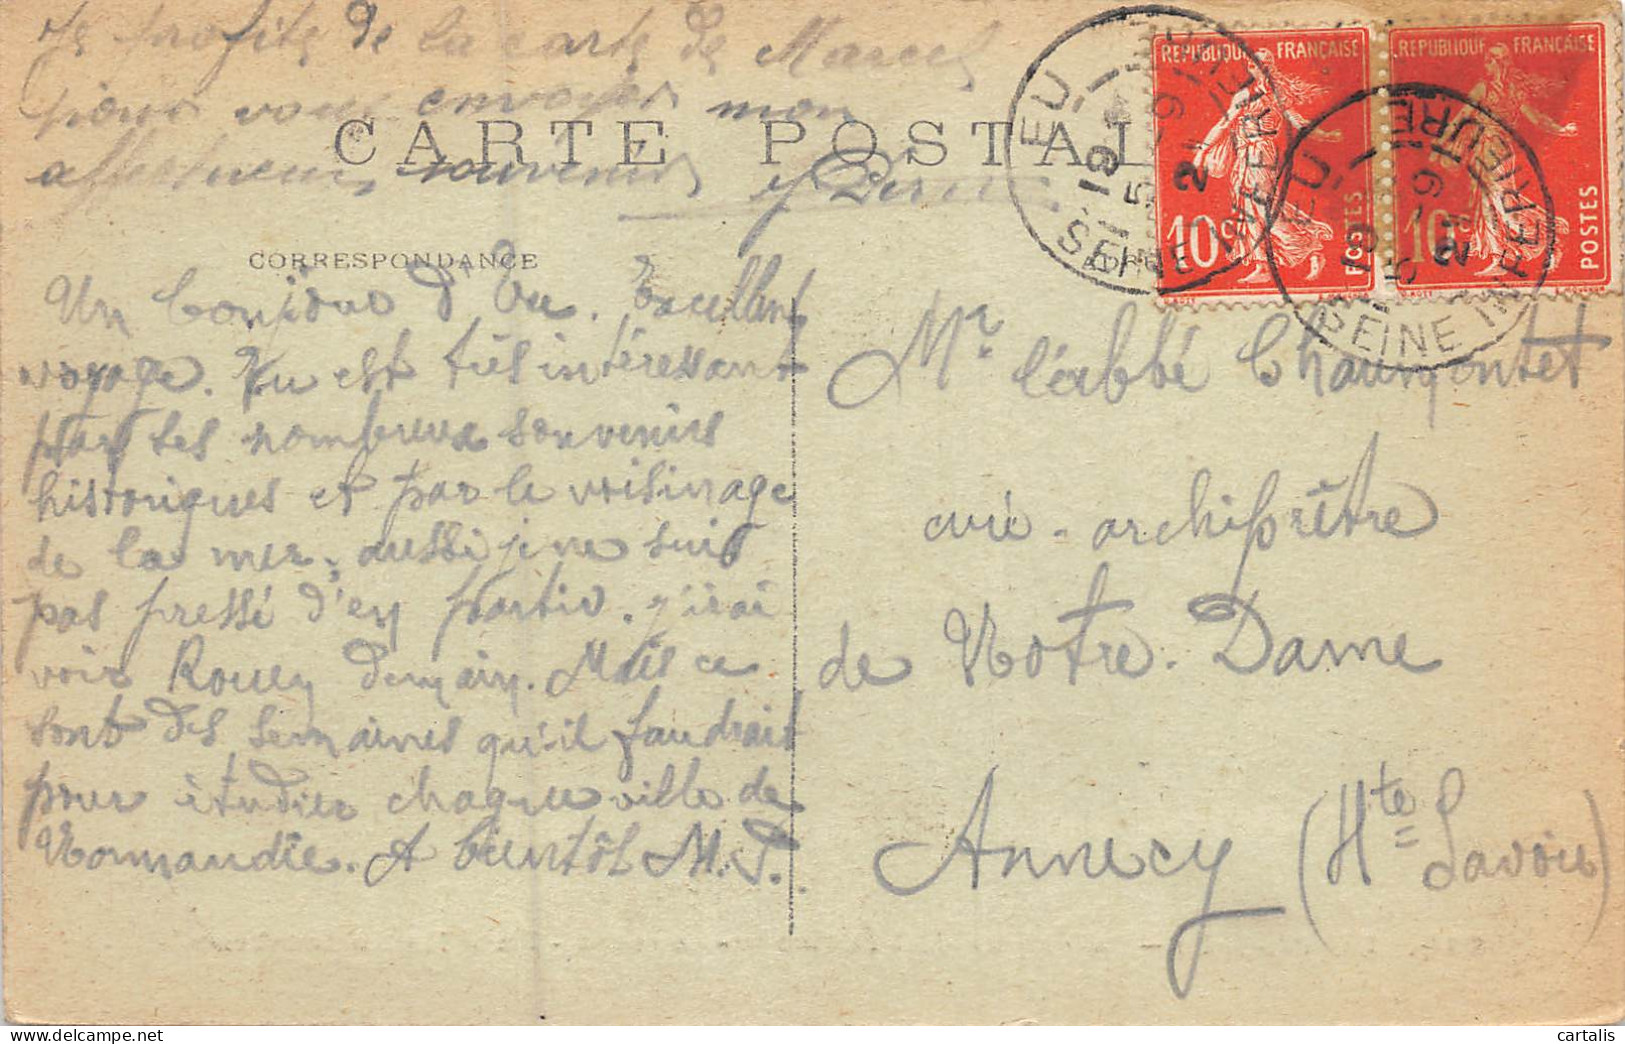 Je profite de la carte de Marcel
pour vous envoyer mon
affectueux souvenir
CARTE POSTALE
CORRESPONDANCE
Un bonjour d'Eu. Excellent
voyage. Eu est très intéressant
par ses nombreux souvenirs
historiques et par le voisinage
de la mer, aussi je ne suis
pas pressé d'en partir. J'irai
voir Rouen demain. Mais ce
sont des semaines qu'il faudrait
pour étudier chaque ville de
Normandie. A bientôt M.
REPUBLIQUE FRANÇAISE
10c
POSTES
REPUBLIQUE FRANÇAISE
10c
POSTES
EU
19
5-9
21
SEINE INFERIEURE
EU
19
5-9
21
SEINE INFERIEURE
Mr l'abbé Chaumontet
curé-archiprêtre
de Notre-Dame
Annecy (Hte Savoie)
cartalis